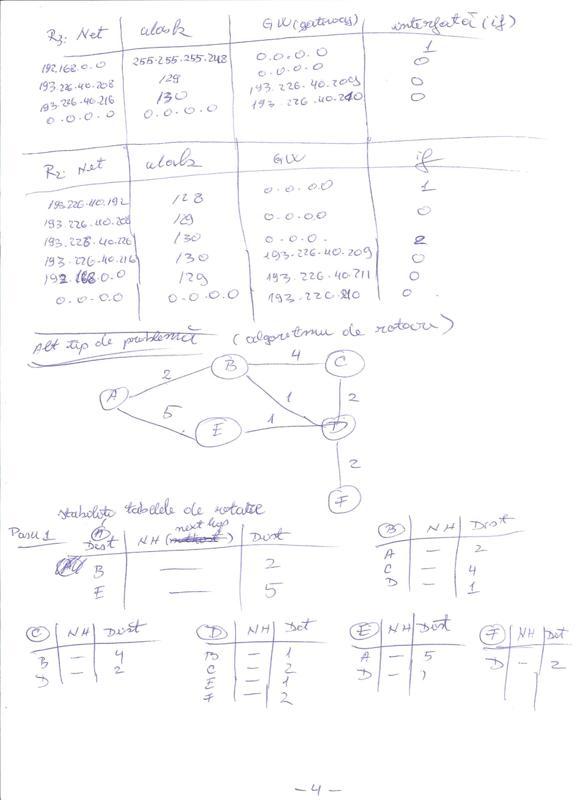 R3: Net Mask GW (gateway) interfață (if)
192.168.0.0 255.255.255.248 0.0.0.0 1
193.226.40.208 129 0.0.0.0 0
193.226.40.216 130 193.226.40.209 0
0.0.0.0 0.0.0.0 193.226.40.210 0
R2: Net Mask GW if
193.226.40.192 128 0.0.0.0 1
193.226.40.208 129 0.0.0.0 0
130 0.0.0. 2
130 193.226.40.209 0
192.168.0.0 129 193.226.40.211 0
0.0.0.0 0.0.0.0 0
Alt tip de problemă (algoritmu de rotare)
A 2 B 4 C
5 E 1 1 D 2
2
F
Stabiliți tabelele de rotare
Pasu 1
A
Dest NH (next hop) Dist
B — 2
E — 5
B NH Dist
A — 2
C — 4
D — 1
C NH Dist
B — 4
D — 2
D NH Dst
B — 1
C — 2
E — 1
F — 2
E NH Dist
A — 5
D — 1
F NH Dst
D — 2
— 4 —